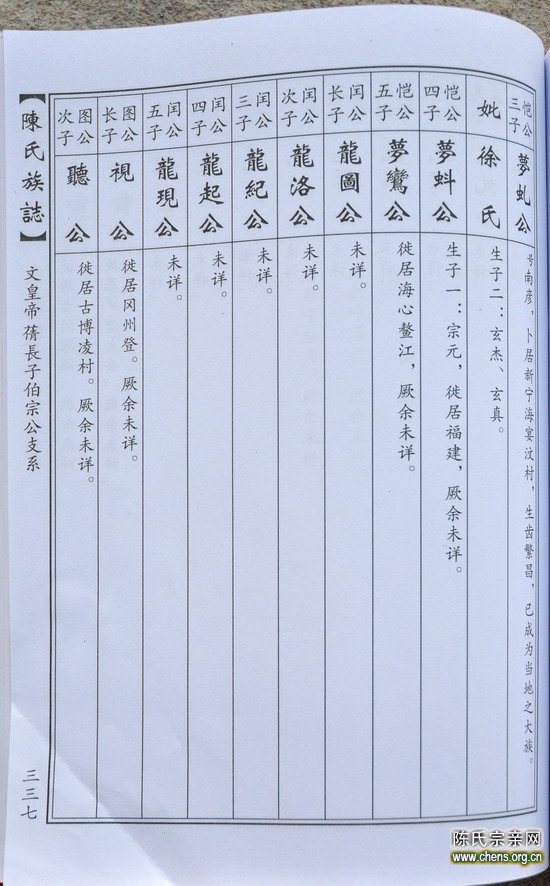 恺公三子
夢虬公
号南彦，卜居新宁海宴汶村，生齿繁昌，已成为当地之大族。
妣徐氏
生子二：玄杰、玄真。
恺公四子
夢蚪公
生子一：宗元，徙居福建，厥余未详。
恺公五子
夢鸞公
徙居海心鳌江，厥余未详。
闰公长子
龍圖公
未详。
闰公次子
龍洛公
未详。
闰公三子
龍紀公
未详。
闰公四子
龍起公
未详。
闰公五子
龍現公
未详。
图公长子
視公
徙居冈州登。厥余未详。
图公次子
聽公
徙居古博凌村。厥余未详。
【陳氏族誌】
文皇帝蒨長子伯宗公支系
三三七
陈氏宗亲网
www.chens.org.cn